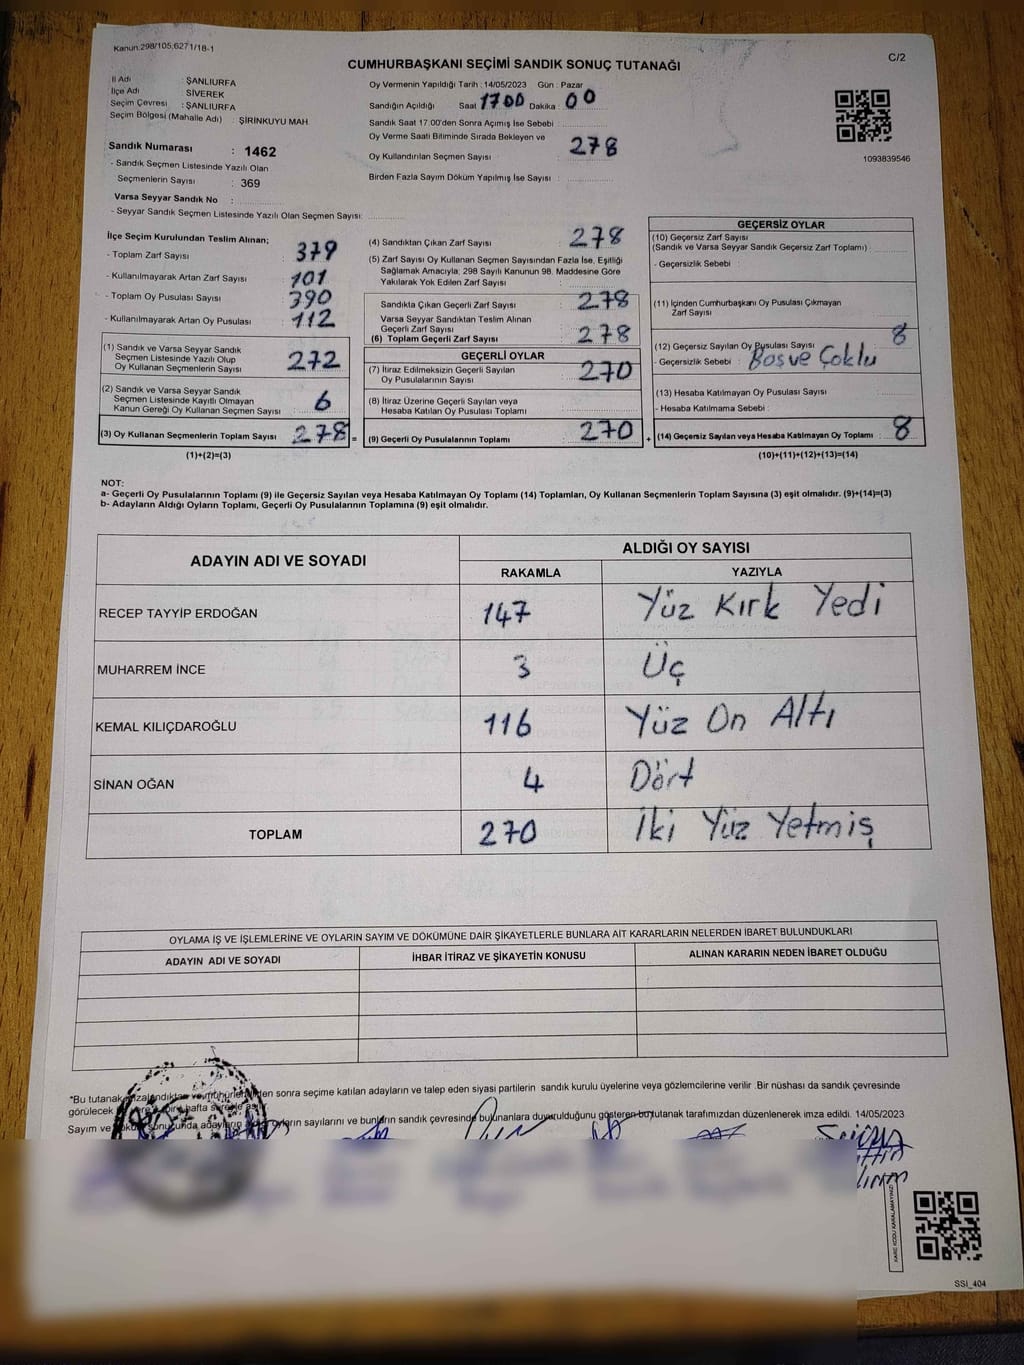 Kanun:298/105,6271/18-1
C/2
CUMHURBAŞKANI SEÇİMİ SANDIK SONUÇ TUTANAĞI
İl Adı : ŞANLIURFA
İlçe Adı : SİVEREK
Seçim Çevresi : ŞANLIURFA
Seçim Bölgesi (Mahalle Adı) : ŞİRİNKUYU MAH.
Sandık Numarası : 1462
- Sandık Seçmen Listesinde Yazılı Olan
Seçmenlerin Sayısı : 369
Varsa Seyyar Sandık No :
- Seyyar Sandık Seçmen Listesinde Yazılı Olan Seçmen Sayısı:
Oy Vermenin Yapıldığı Tarih : 14/05/2023 Gün : Pazar
Sandığın Açıldığı Saat 1700 Dakika : 00
Sandık Saat 17:00'den Sonra Açımış İse Sebebi :
Oy Verme Saati Bitiminde Sırada Bekleyen ve
Oy Kullandırılan Seçmen Sayısı : 278
Birden Fazla Sayım Döküm Yapılmış İse Sayısı :
1093839546
İlçe Seçim Kurulundan Teslim Alınan;
- Toplam Zarf Sayısı : 379
- Kullanılmayarak Artan Zarf Sayısı : 101
- Toplam Oy Pusulası Sayısı : 390
- Kullanılmayarak Artan Oy Pusulası : 112
(1) Sandık ve Varsa Seyyar Sandık
Seçmen Listesinde Yazılı Olup
Oy Kullanan Seçmenlerin Sayısı : 272
(2) Sandık ve Varsa Seyyar Sandık
Seçmen Listesinde Kayıtlı Olmayan
Kanun Gereği Oy Kullanan Seçmen Sayısı : 6
(3) Oy Kullanan Seçmenlerin Toplam Sayısı : 278 =
(1)+(2)=(3)
(4) Sandıktan Çıkan Zarf Sayısı : 278
(5) Zarf Sayısı Oy Kullanan Seçmen Sayısından Fazla İse, Eşitliği
Sağlamak Amacıyla; 298 Sayılı Kanunun 98. Maddesine Göre
Yakılarak Yok Edilen Zarf Sayısı :
Sandıkta Çıkan Geçerli Zarf Sayısı : 278
Varsa Seyyar Sandıktan Teslim Alınan
Geçerli Zarf Sayısı :
(6) Toplam Geçerli Zarf Sayısı : 278
GEÇERLİ OYLAR
(7) İtiraz Edilmeksizin Geçerli Sayılan
Oy Pusulalarının Sayısı : 270
(8) İtiraz Üzerine Geçerli Sayılan veya
Hesaba Katılan Oy Pusulası Toplamı :
(9) Geçerli Oy Pusulalarının Toplamı : 270 +
GEÇERSİZ OYLAR
(10) Geçersiz Zarf Sayısı
(Sandık ve Varsa Seyyar Sandık Geçersiz Zarf Toplamı) :
- Geçersizlik Sebebi :
(11) İçinden Cumhurbaşkanı Oy Pusulası Çıkmayan
Zarf Sayısı :
(12) Geçersiz Sayılan Oy Pusulası Sayısı : 8
- Geçersizlik Sebebi : Boş ve Çoklu
(13) Hesaba Katılmayan Oy Pusulası Sayısı :
- Hesaba Katılmama Sebebi :
(14) Geçersiz Sayılan veya Hesaba Katılmayan Oy Toplamı : 8
(10)+(11)+(12)+(13)=(14)
NOT:
a- Geçerli Oy Pusulalarının Toplamı (9) ile Geçersiz Sayılan veya Hesaba Katılmayan Oy Toplamı (14) Toplamları, Oy Kullanan Seçmenlerin Toplam Sayısına (3) eşit olmalıdır. (9)+(14)=(3)
b- Adayların Aldığı Oyların Toplamı, Geçerli Oy Pusulalarının Toplamına (9) eşit olmalıdır.
ADAYIN ADI VE SOYADI
ALDIĞI OY SAYISI
RAKAMLA YAZIYLA
RECEP TAYYİP ERDOĞAN 147 Yüz Kırk Yedi
MUHARREM İNCE 3 Üç
KEMAL KILIÇDAROĞLU 116 Yüz On Altı
SİNAN OĞAN 4 Dört
TOPLAM 270 İki Yüz Yetmiş
OYLAMA İŞ VE İŞLEMLERİNE VE OYLARIN SAYIM VE DÖKÜMÜNE DAİR ŞİKAYETLERLE BUNLARA AİT KARARLARIN NELERDEN İBARET BULUNDUKLARI
ADAYIN ADI VE SOYADI İHBAR İTİRAZ VE ŞİKAYETİN KONUSU ALINAN KARARIN NEDEN İBARET OLDUĞU
*Bu tutanak imzalandıktan ve mühürlendikten sonra seçime katılan adayların ve talep eden siyasi partilerin sandık kurulu üyelerine veya gözlemcilerine verilir .Bir nüshası da sandık çevresinde
görülecek bir yere bir hafta süreyle asılır.
Sayım ve döküm sonucunda adayların aldığı oyların sayılarını ve bunların sandık çevresinde bulunanlara duyurulduğunu gösteren bu tutanak tarafımızdan düzenlenerek imza edildi. 14/05/2023
KARE KODU KARALAMAYINIZ!
SSİ_404